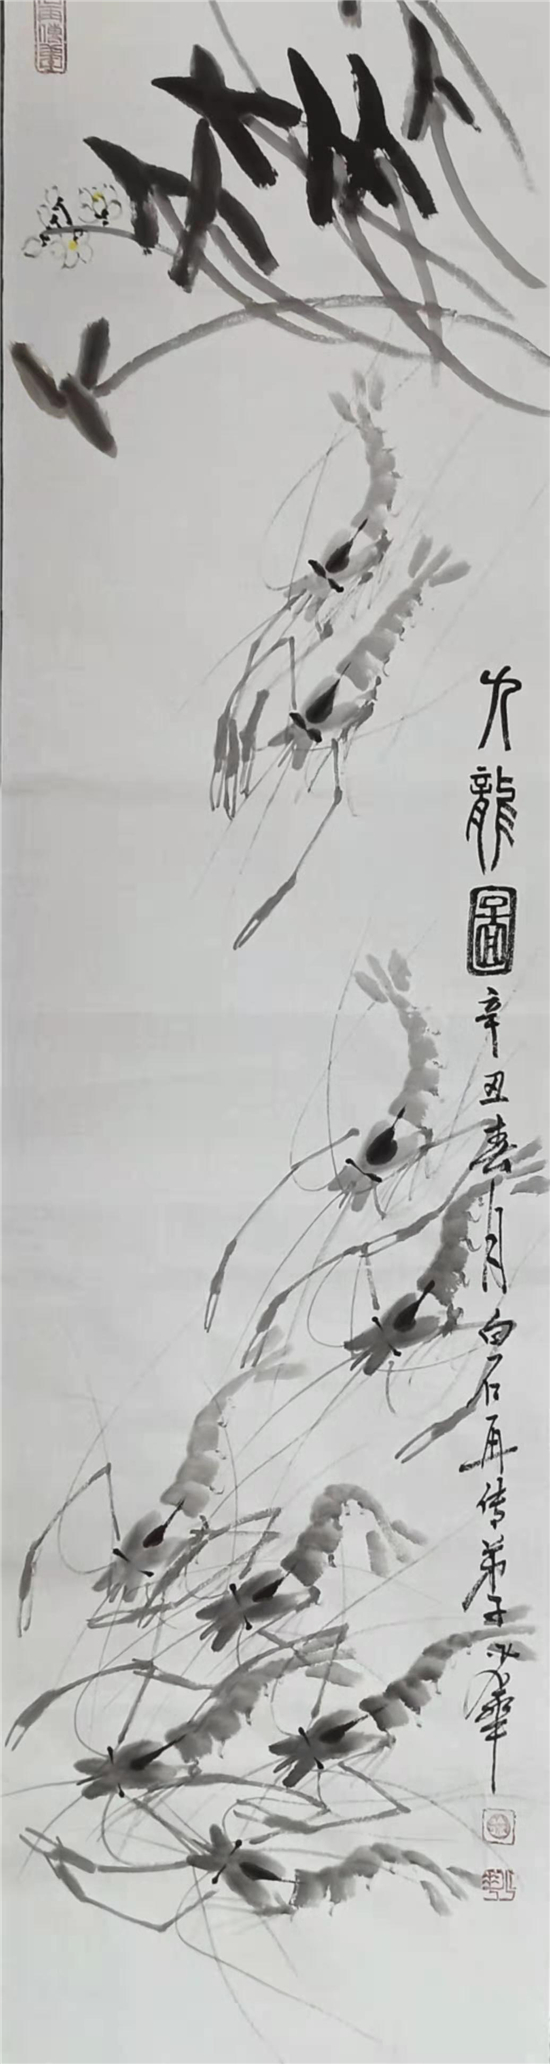 九龍圖
辛丑春月白石再传弟子少华